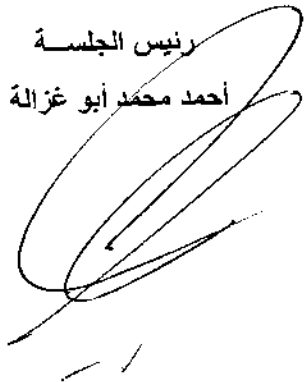 رئيس الجلســة
أحمد محمد أبو غزالة